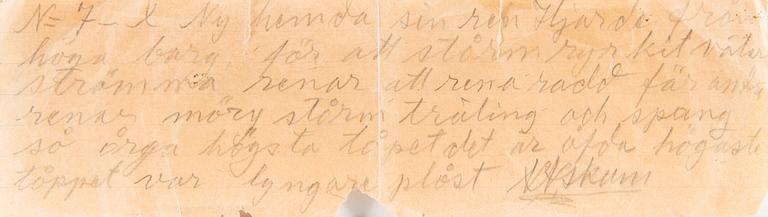 N= 7- X Ny hemda sin ren Hjarde från
höga barg, för att storm ryrkit väter
strömma renar att rena radd fär andr
renar möry storm träling och spang
så örga högsta tôpet det är ofda högaste
töppet var lyngare plöst